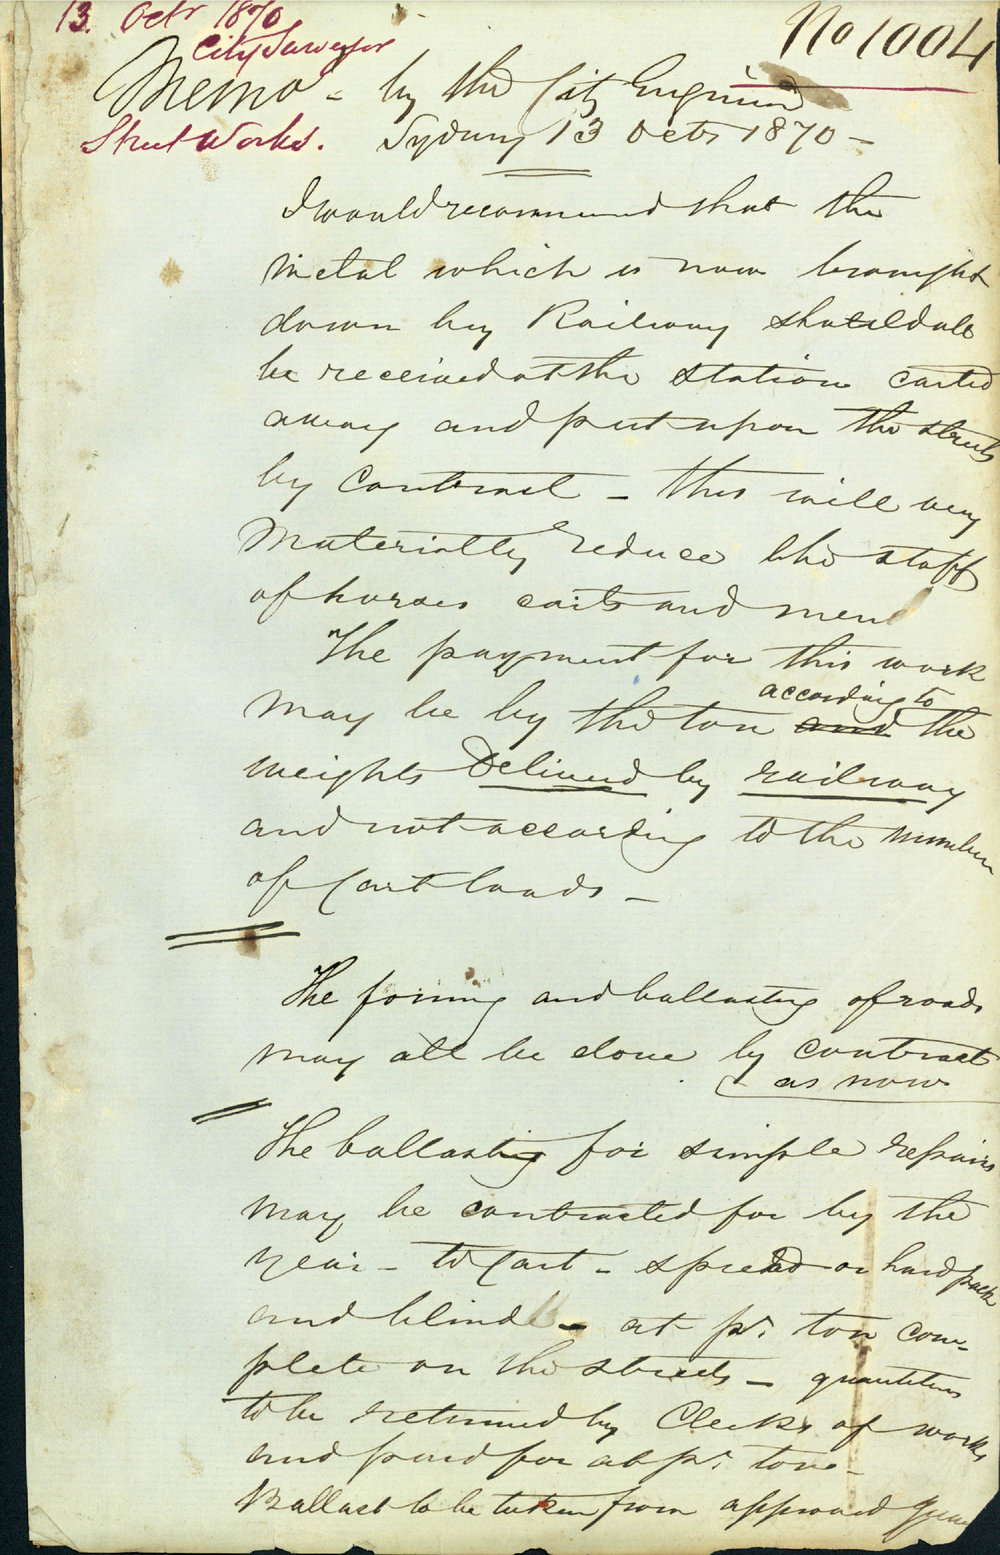 13. Octr 1870
No 1004
City Surveyor
Memo - by the City Engineer
Street Works.
Sydney 13 Octr 1870 -
I would recommend that the
metal which is now brought
down by Railway should all
be received at the station carted
away and put upon the streets
by Contract - this will very
Materially reduce the staff
of horses carts and men
The payment for this work
according to
may be by the ton and the
weights Delivered by railway
and not according to the number
of Cart loads -
The forming and ballasting of roads
may all be done by contract
as now
The ballasting for simple repairs
may be contracted for by the
year - to Cart - spread or hand pack
and blind - at pr. ton com-
plete on the streets - quantities
to be returned by Clerks of works
and paid for at pr. ton -
Ballast to be taken from approved